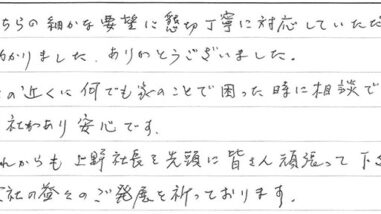 ちらの細かな要望に懇切丁寧に対応していただ
かりました。ありがとうございました。
の近くに何でも家のことで困った時に相談で
社があり安心です。
れからも上野社長を先頭に皆さん頑張って下さ
社の益々のご発展を祈っております。